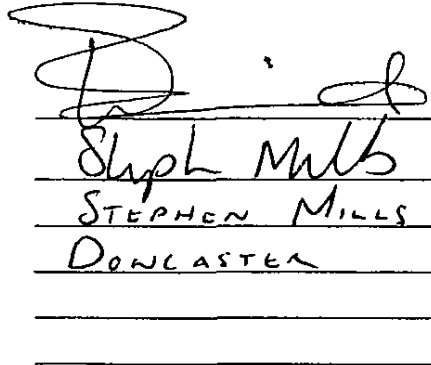 Steph Mills
STEPHEN MILLS
DONCASTER